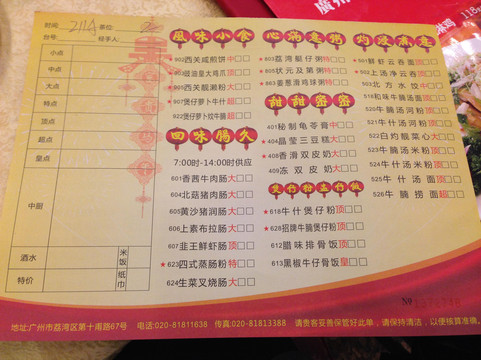 时间: 211A 茶位:
台号: 经手人:
小点
中点
大点
特点
顶点
超点
皇点
中厨
酒水
米饭
特价
纸巾
風味小食
902西关咸煎饼中□□
★907煲仔萝卜牛什超□□
922煲仔萝卜炆牛腩超□□
四味腸久
7:00时-14:00时供应
601香茜牛肉肠大□□
604北菇猪肉肠大□□
605黄沙猪润肠大□□
606上素布拉肠大□□
607韭王鲜虾肠顶□□
★623四式蒸肠粉特□□
624生菜叉烧肠大□□
★803荔湾艇仔粥特□□
★805状元及第粥特□□
甜甜蜜蜜
401秘制龟苓膏中□□
★404晶莹三豆糕大□□
★408香滑双皮奶大□□
409冻双皮奶大□□
★618牛什煲仔粉顶□□
★628招牌牛腩煲仔粉顶□□
612腊味排骨饭顶□□
613黑椒牛仔骨饭皇□□
★501鲜虾云吞面顶□□
★503上汤净云吞顶□□
513北方水饺中□□
518和味牛腩汤面顶□□
520牛腩汤河粉顶□□
521牛什汤河粉顶□□
522白灼靓菜心大□□
523牛腩汤米粉顶□□
524牛什汤米粉顶□□
525牛什汤面顶□□
526牛腩捞面超□□
地址:广州市荔湾区第十甫路67号 电话:020-81811638 传真:020-81813388 请贵客妥善保管好此单，请保持清洁，以便核算准确。